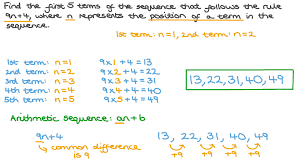 Find the first 5 terms of the sequence that follows the rule
9n+4, where n represents the position of a term in the
sequence.
1st term: n=1, 2nd term: n=2
1st term: n=1 9×1+4=13
2nd term: n=2 9×2+4=22
3rd term: n=3 9×3+4=31
4th term: n=4 9×4+4=40
5th term: n=5 9×5+4=49
13,22,31,40,49
Arithmetic Sequence: an+b
9n+4 13, 22, 31, 40, 49
common difference
is 9
+9 +9 +9 +9